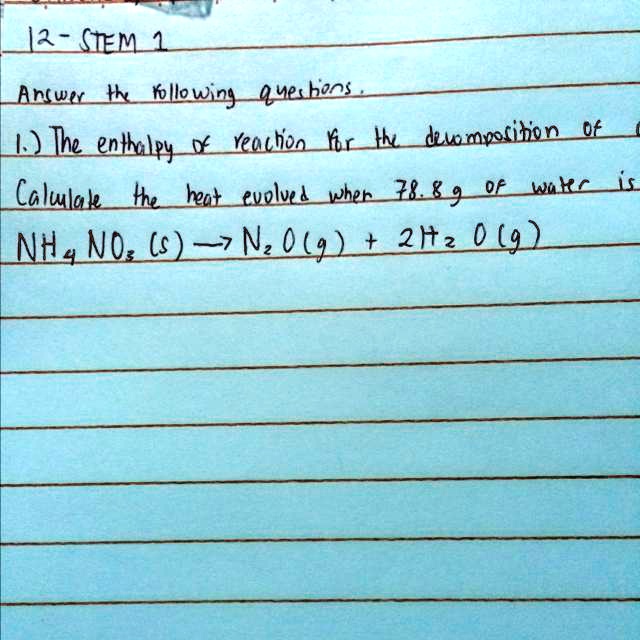 12 - STEM 1
Answer the following questions.
1.) The enthalpy of reaction for the decomposition of
Calculate the heat evolved when 78.8 g of water is
NH₄ NO₃ (s) → N₂ O (g) + 2H₂ O (g)